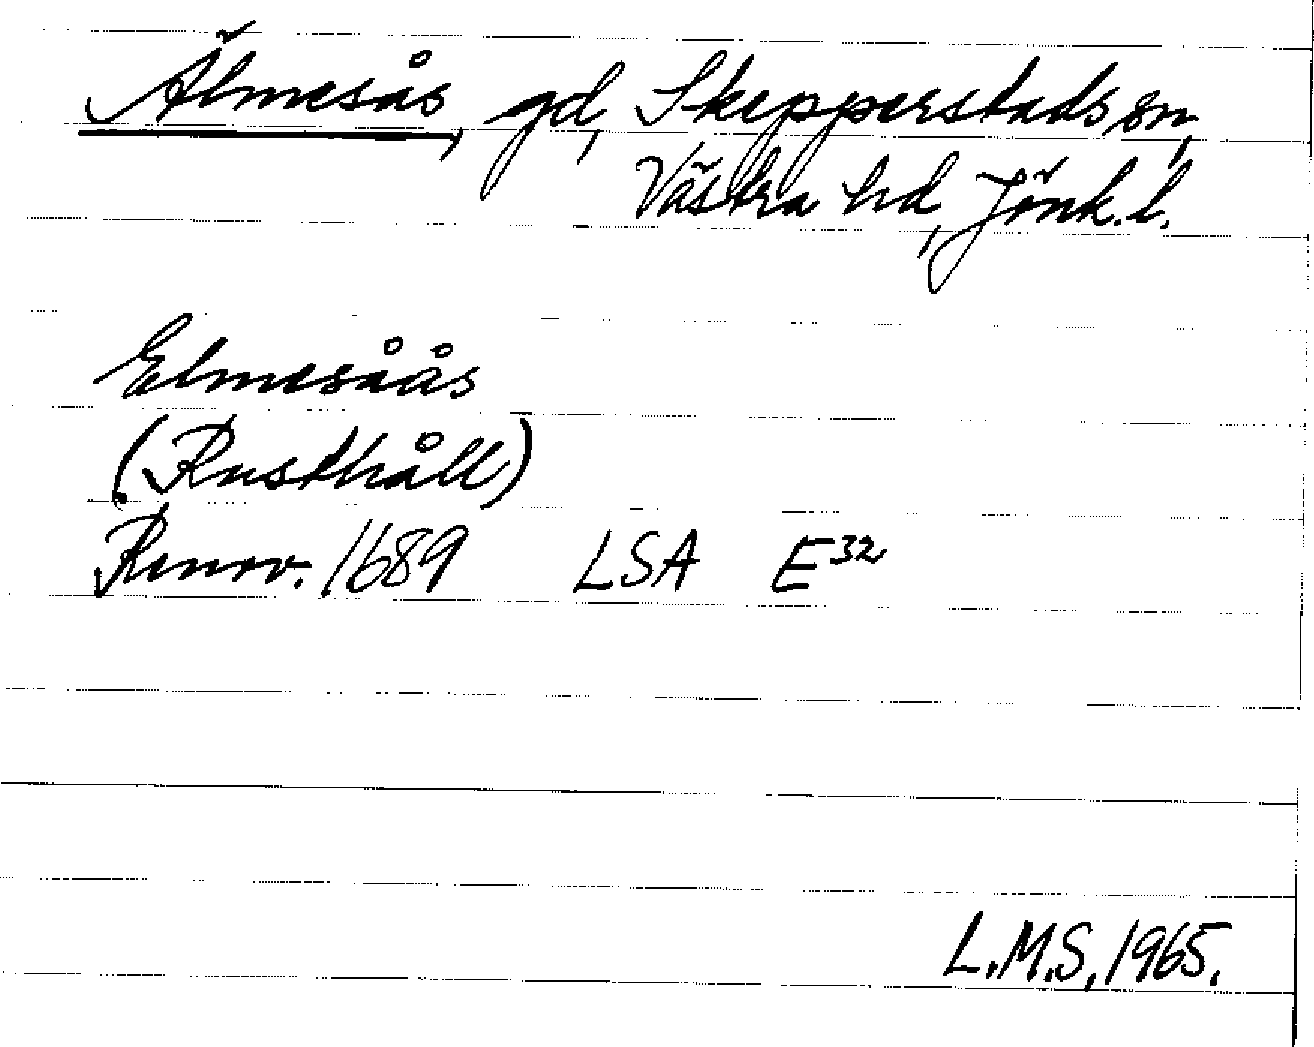 Älmesås, gd, Skepperstads sn,
Västra hd, Jönk. l.
Elmesåås
(Rusthåll)
Renov. 1689 LSA E32
L.M.S. 1965.